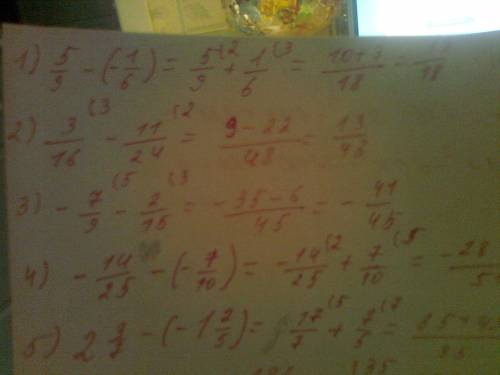 1) 5/9 - (-1/6) = 5/9 (2 + 1/6 (3 = 10+3/18 = 13/18
2) 3/16 (3 - 11/24 (2 = 9-22/48 = 13/48
3) - 7/9 (5 - 2/15 (3 = -35-6/45 = - 41/45
4) - 14/25 - (-7/10) = -14/25 (2 + 7/10 (5 = -28
5) 2 3/7 - (-1 2/5) = 17/7 (5 + 7/5 (7 = 85+4